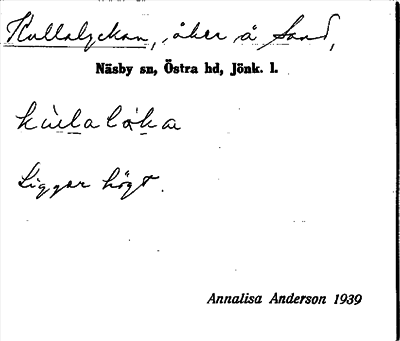 Kullalyckan, åker å Sand,
Näsby sn, Östra hd, Jönk. l.
kùllalòka
Ligger högt.
Annalisa Anderson 1939